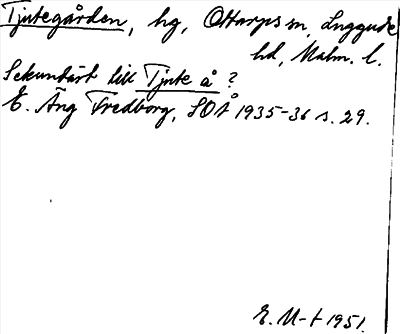 Tjutegården, hg, Ottarps sn, Luggude
hd, Malm. l.
Sekundärt till Tjute å?
E. Äng Fredborg, SOÅ 1935-36 s. 29.
E. M-t 1951.